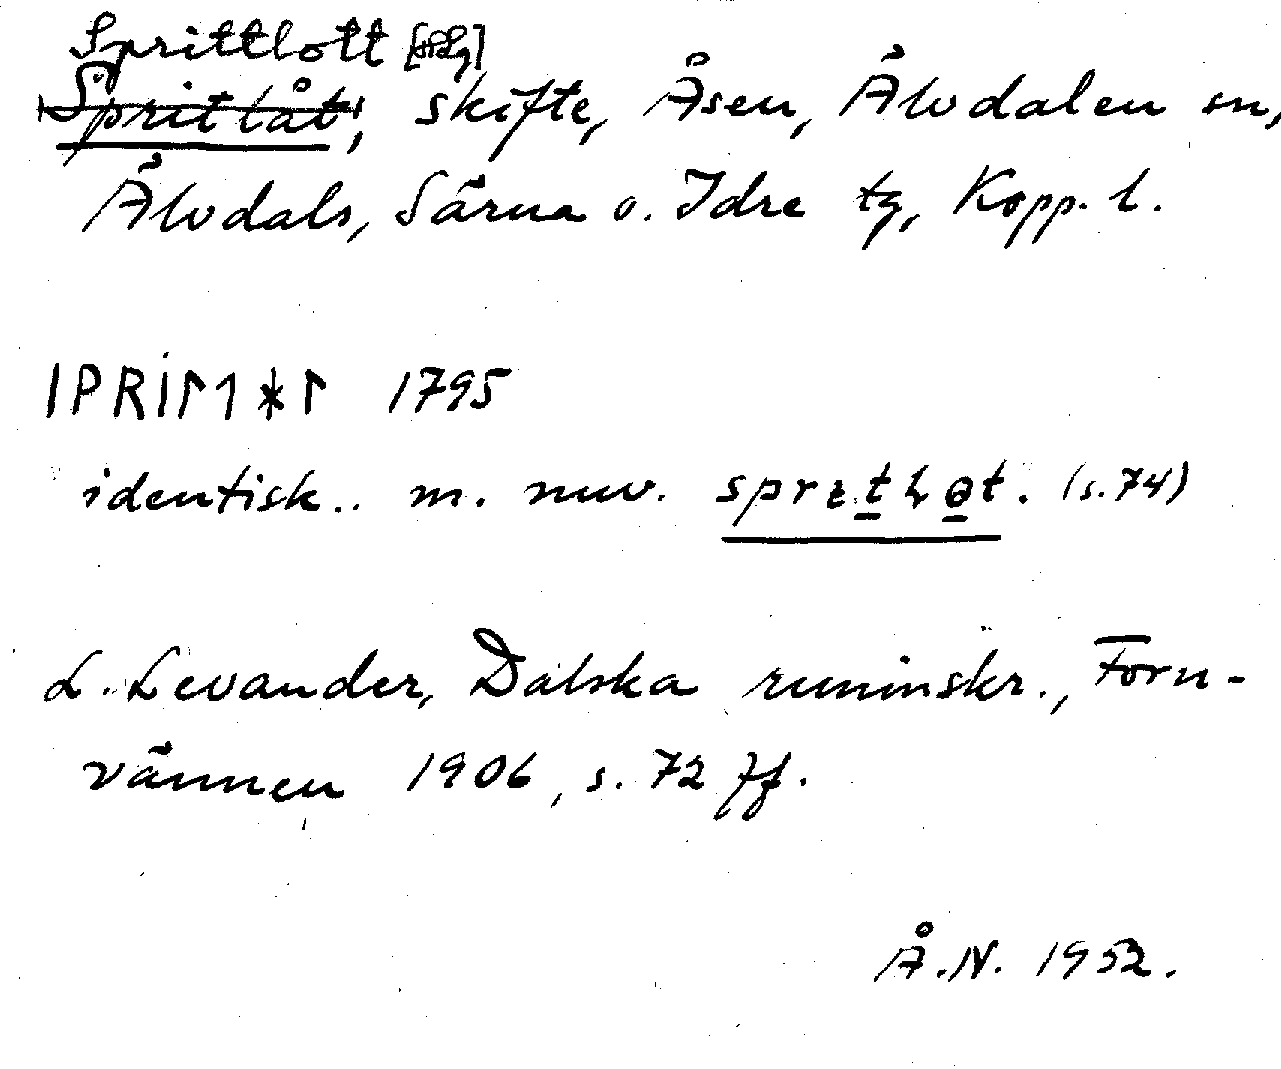 Sprittlott
'Spritlåt', skifte, Åsen, Älvdalen sn,
Älvdals, Särna o. Idre tg, Kopp. l.
ᛁPRİᛚᛐᛡᛚ 1795
identisk.. m. nuv. sprɩt̠ꞎɵ̠t. (s.74)
L. Levander, Dalska runinskr., Forn-
vännen 1906, s. 72 ff.
Å.N. 1952.